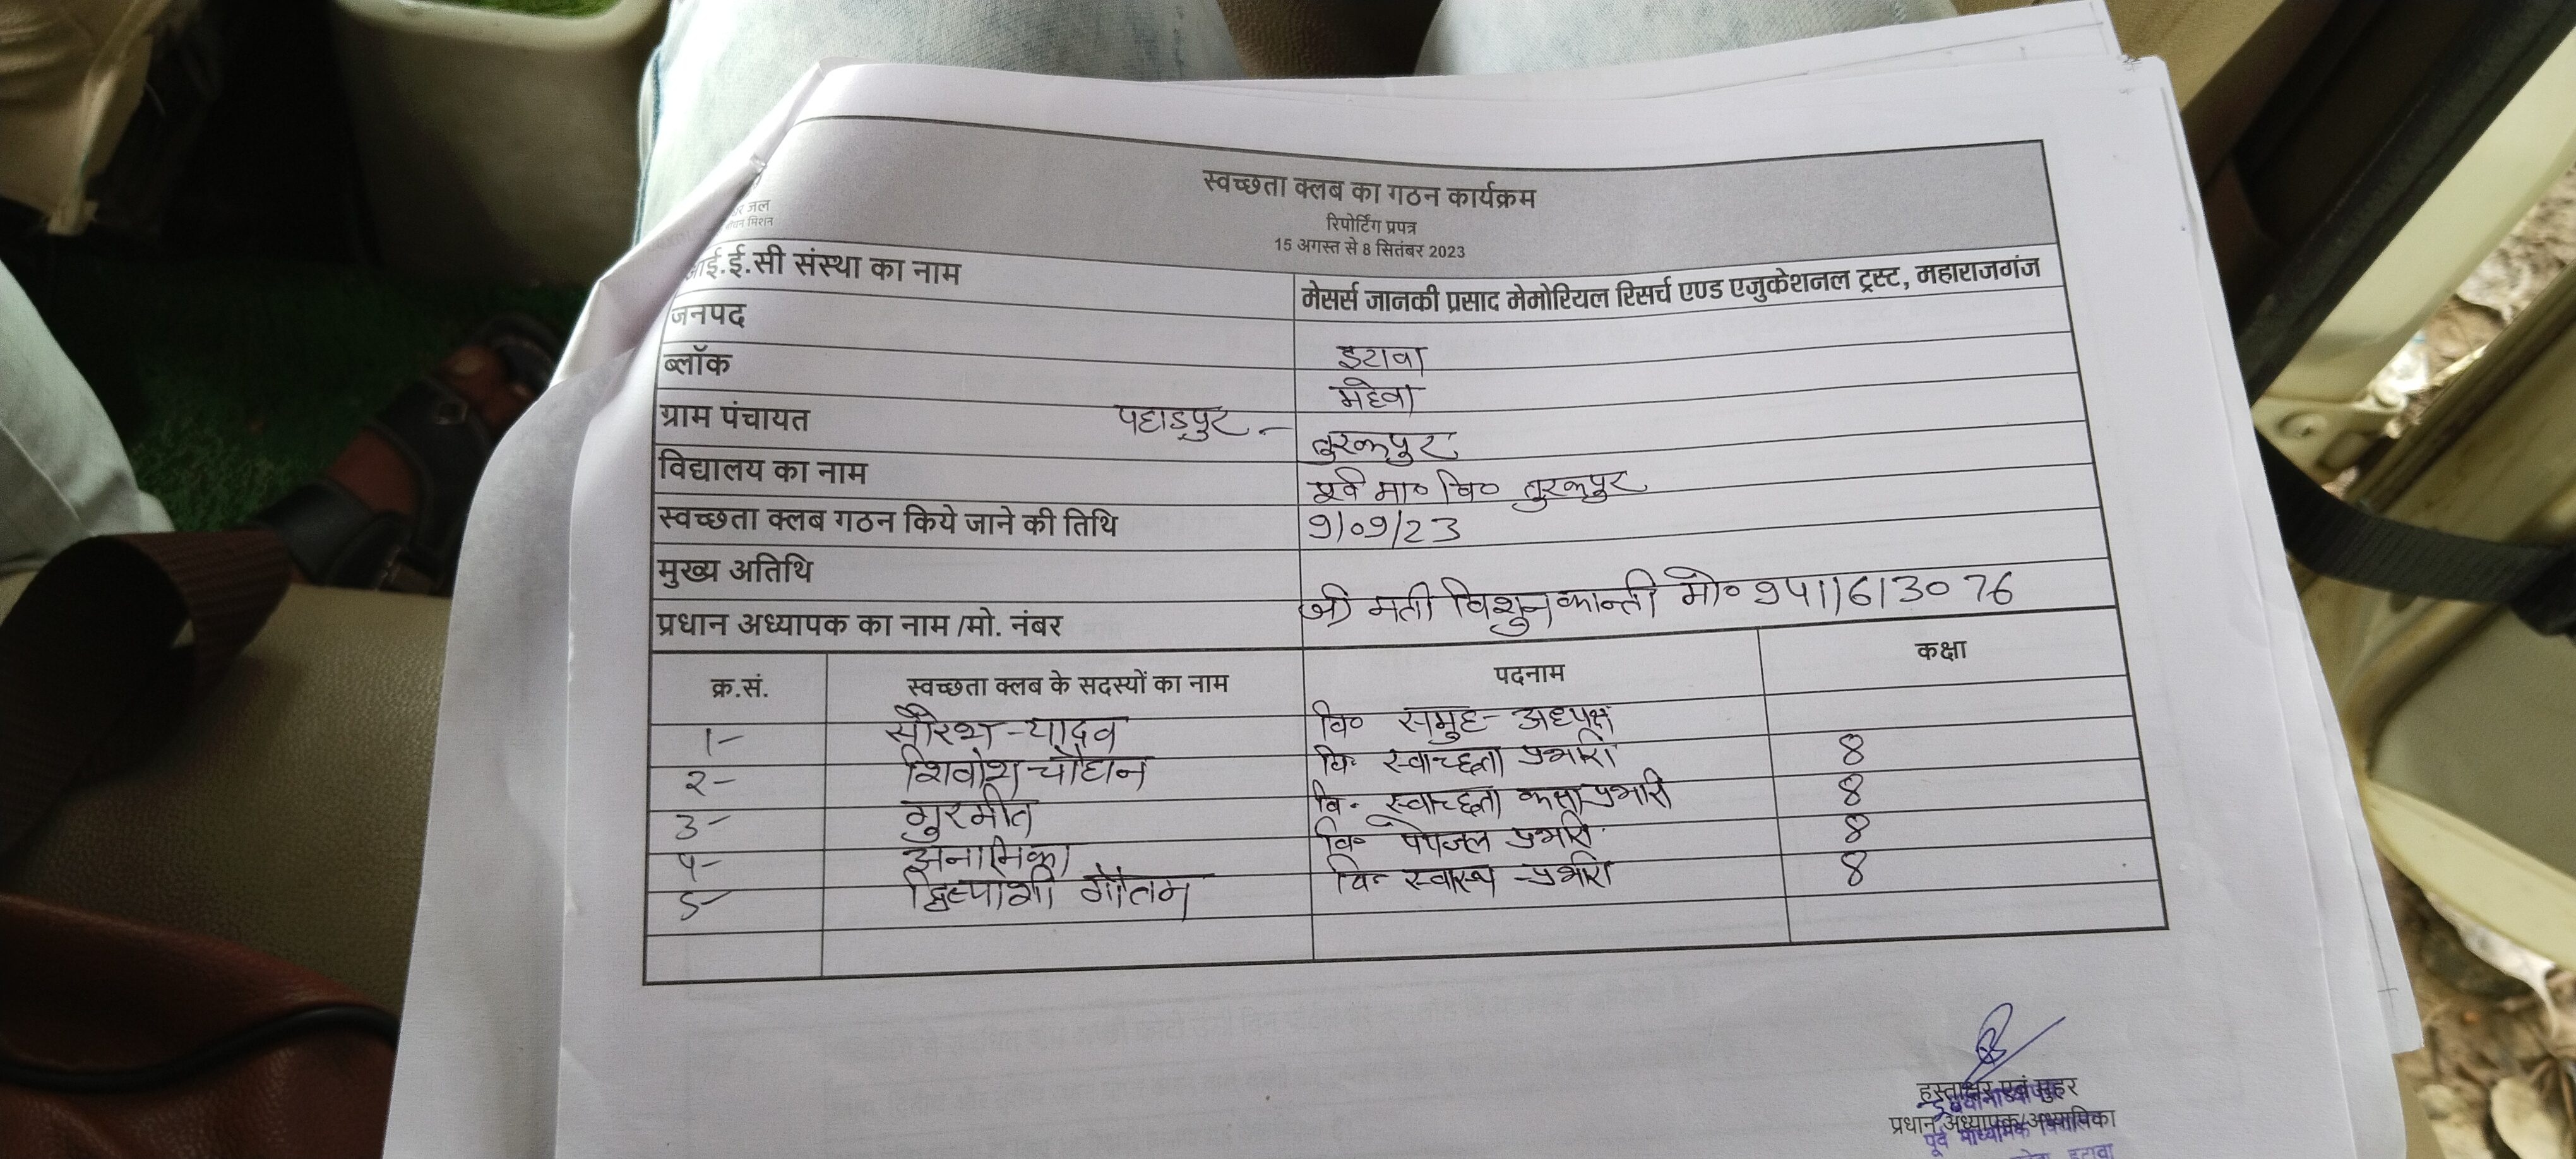 स्वच्छता क्लब का गठन कार्यक्रम
रिपोर्टिंग प्रपत्र
15 अगस्त से 8 सितंबर 2023
जल
मिशन
आई.ई.सी संस्था का नाम मेसर्स जानकी प्रसाद मेमोरियल रिसर्च एण्ड एजुकेशनल ट्रस्ट, महाराजगंज
जनपद इटावा
ब्लॉक महेवा
ग्राम पंचायत पहाड़पुर - तुरकपुर
विद्यालय का नाम पूर्व मा० वि० तुरकपुर
स्वच्छता क्लब गठन किये जाने की तिथि 9/09/23
मुख्य अतिथि
प्रधान अध्यापक का नाम /मो. नंबर श्री मती विशुन कान्ती मो० 9411613076
क्र.सं. स्वच्छता क्लब के सदस्यों का नाम पदनाम कक्षा
1- यादव वि० समुह - अध्यक्ष
2- चौहान वि० स्वाच्छता प्रभारी 8
3- गुरमीत वि. स्वाच्छता कक्षा प्रभारी 8
4- अनामिका वि० पेयजल प्रभारी 8
5- गौतम वि० प्रभारी 8
हस्ताक्षर एवं मुहर
प्रधान अध्यापक/अध्यापिका
पूर्व माध्यमिक
इटावा